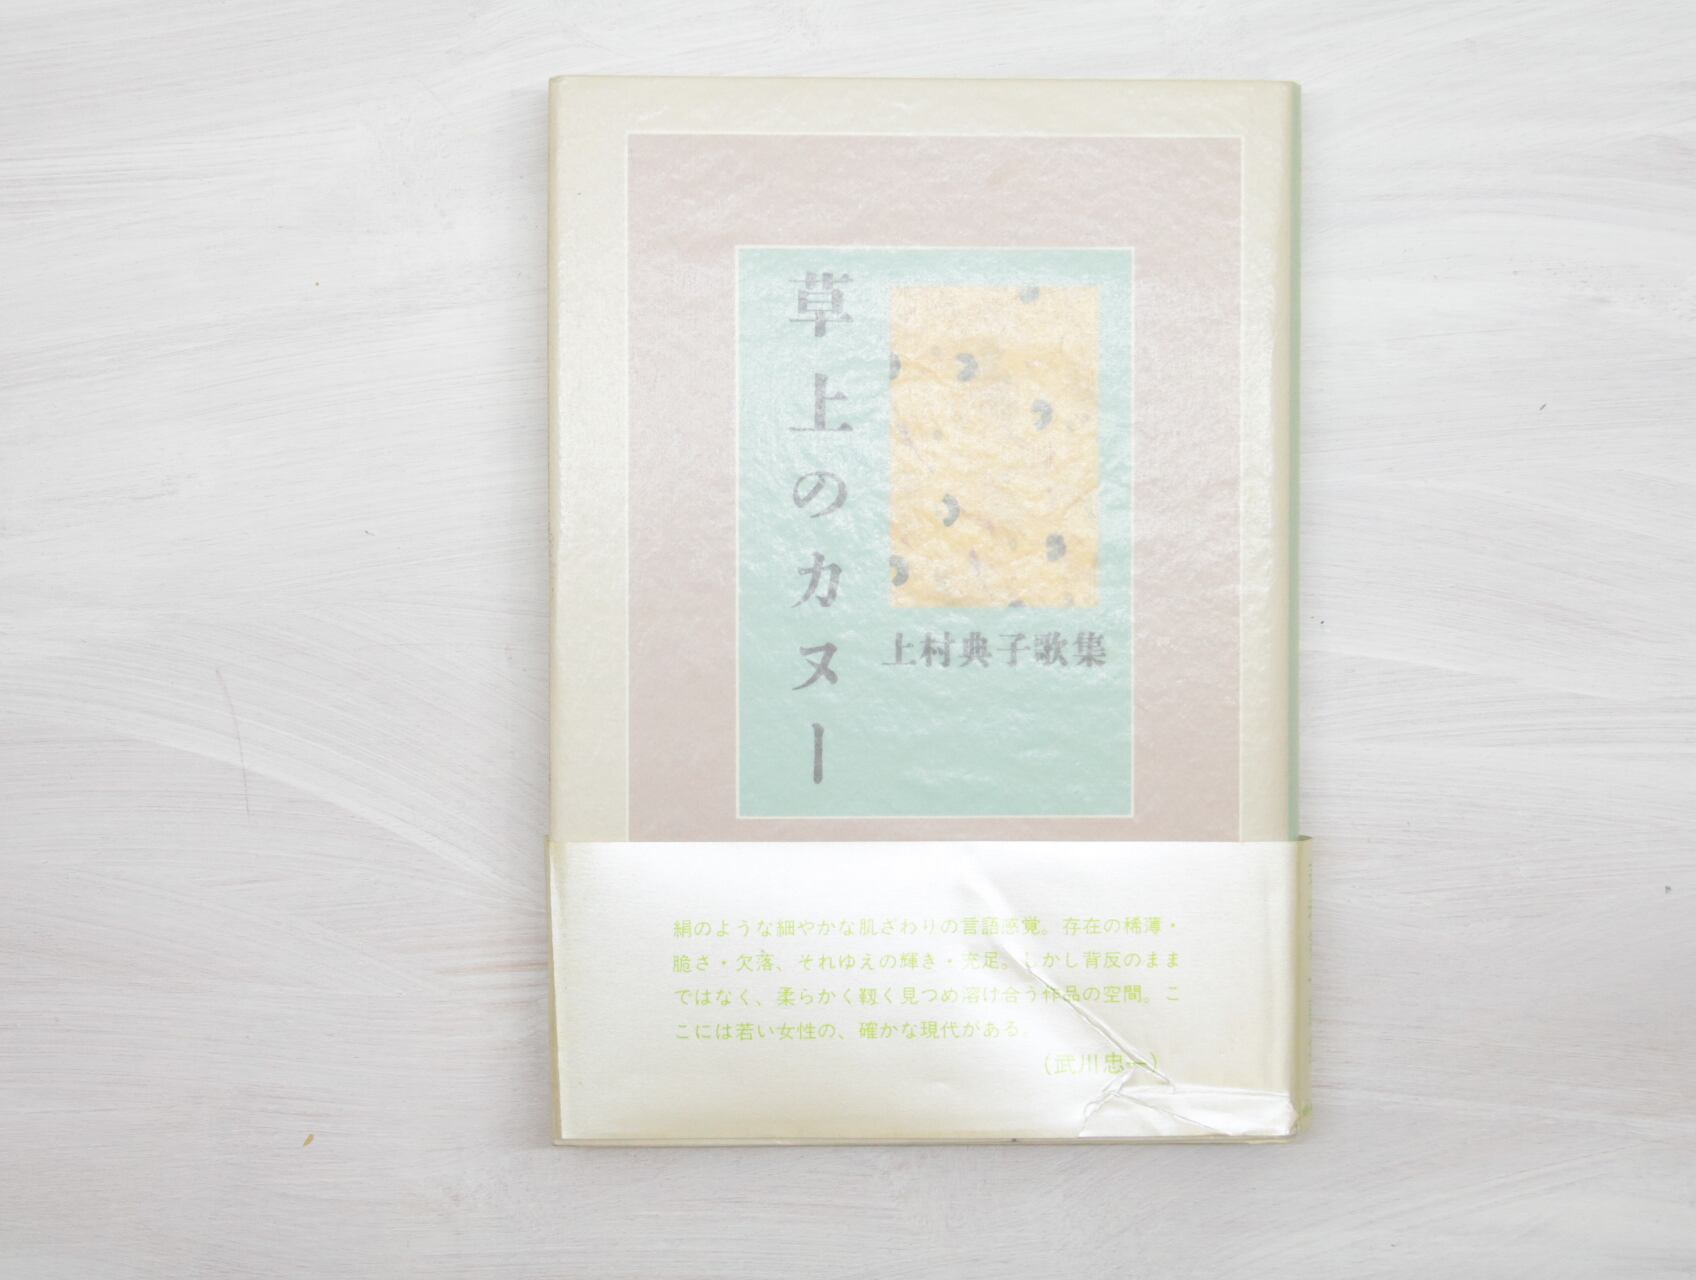 草上のカヌー
上村典子歌集
絹のような細やかな肌ざわりの言語感覚。存在の稀薄・
脆さ・欠落、それゆえの輝き・充足。しかし背反のまま
ではなく、柔らかく靱く見つめ溶け合う作品の空間。こ
こには若い女性の、確かな現代がある。
(武川忠一)